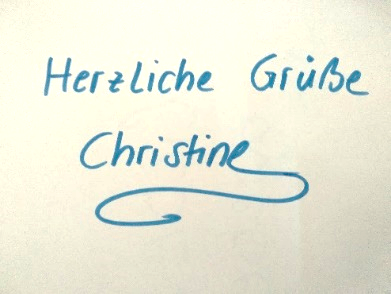 Herzliche Grüße
Christine